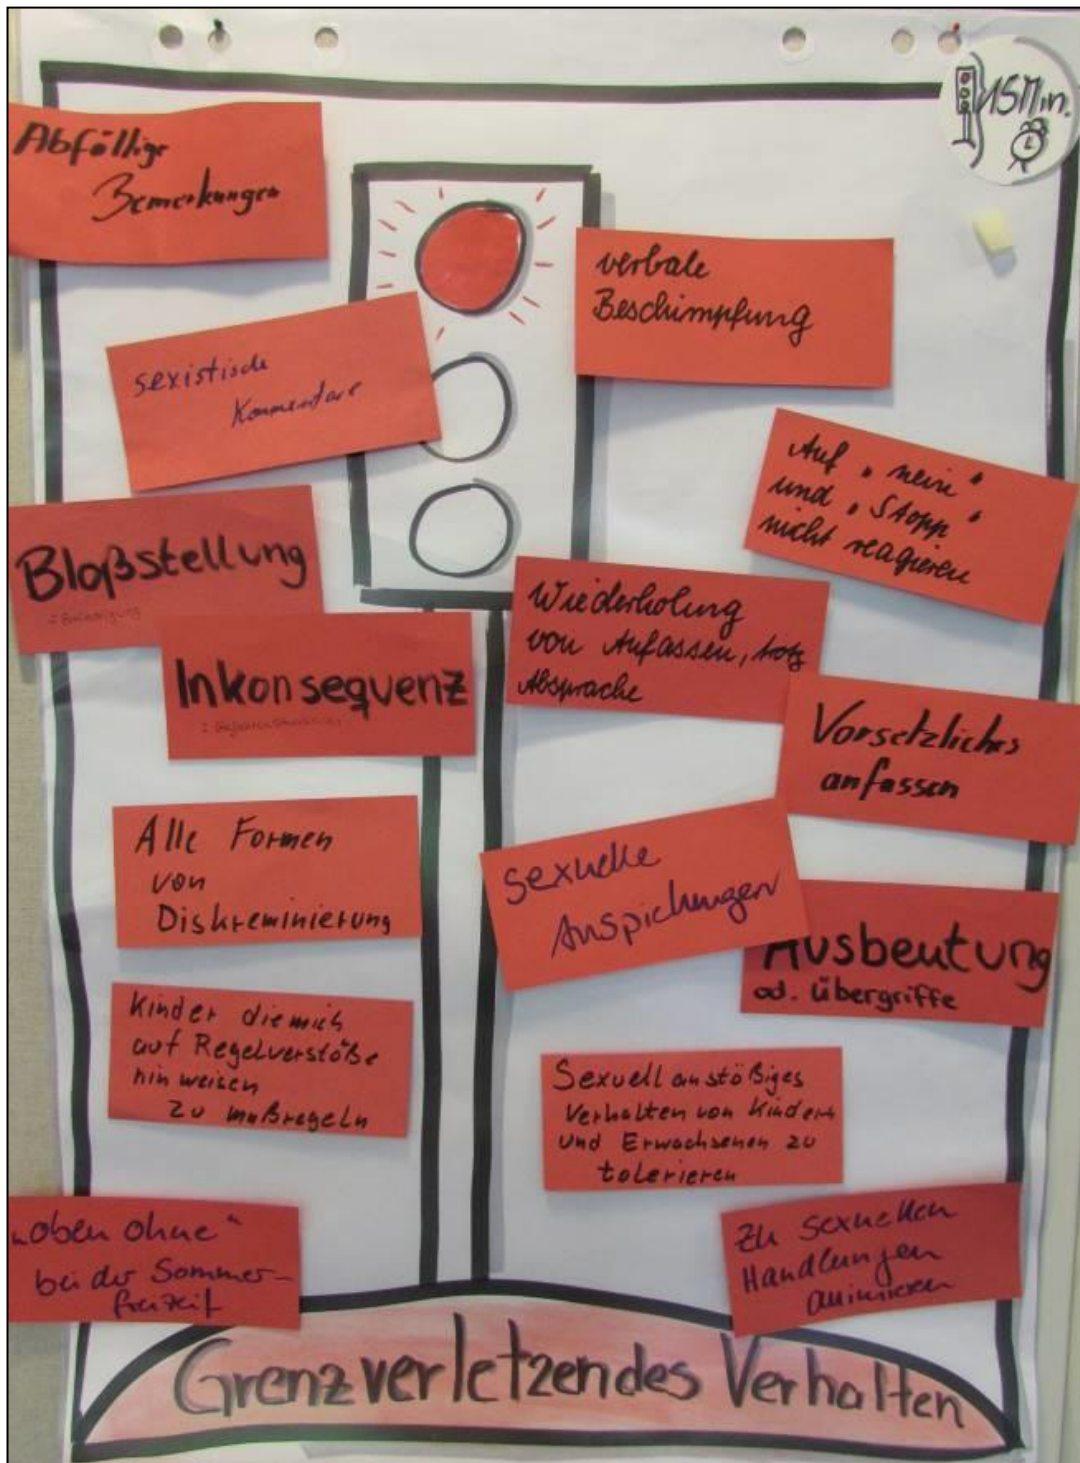 15 Min.
Abfällige
Bemerkungen
verbale
Beschimpfung
sexistische
Kommentare
Auf "nein"
und "Stopp"
nicht reagieren
Bloßstellung
Wiederholung
von Anfassen, trotz
Absprache
Inkonsequenz
Vorsetzliches
anfassen
Alle Formen
von
Diskreminierung
sexuelle
Anspielungen
Ausbeutung
od. Übergriffe
Kinder die mich
auf Regelverstöße
hinweisen
zu maßregeln
Sexuell anstößiges
Verhalten von Kindern
und Erwachsenen zu
tolerieren
"oben ohne"
bei der Sommer-
freizeit
Zu sexuellen
Handlungen
animieren
Grenzverletzendes Verhalten